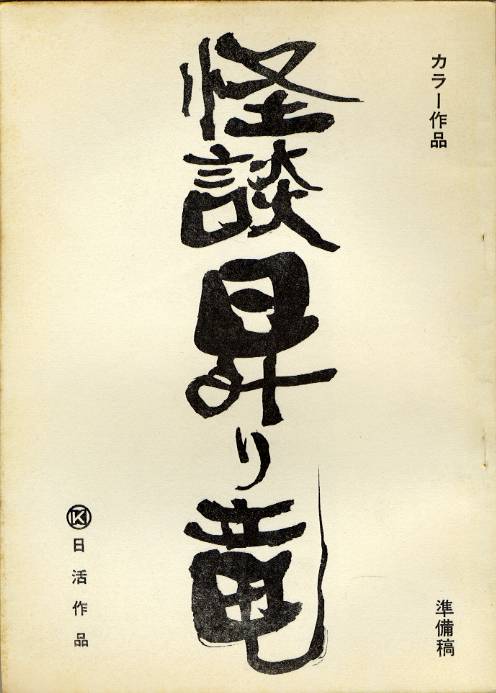 カラー作品
怪談昇り竜
準備稿
K
日活作品